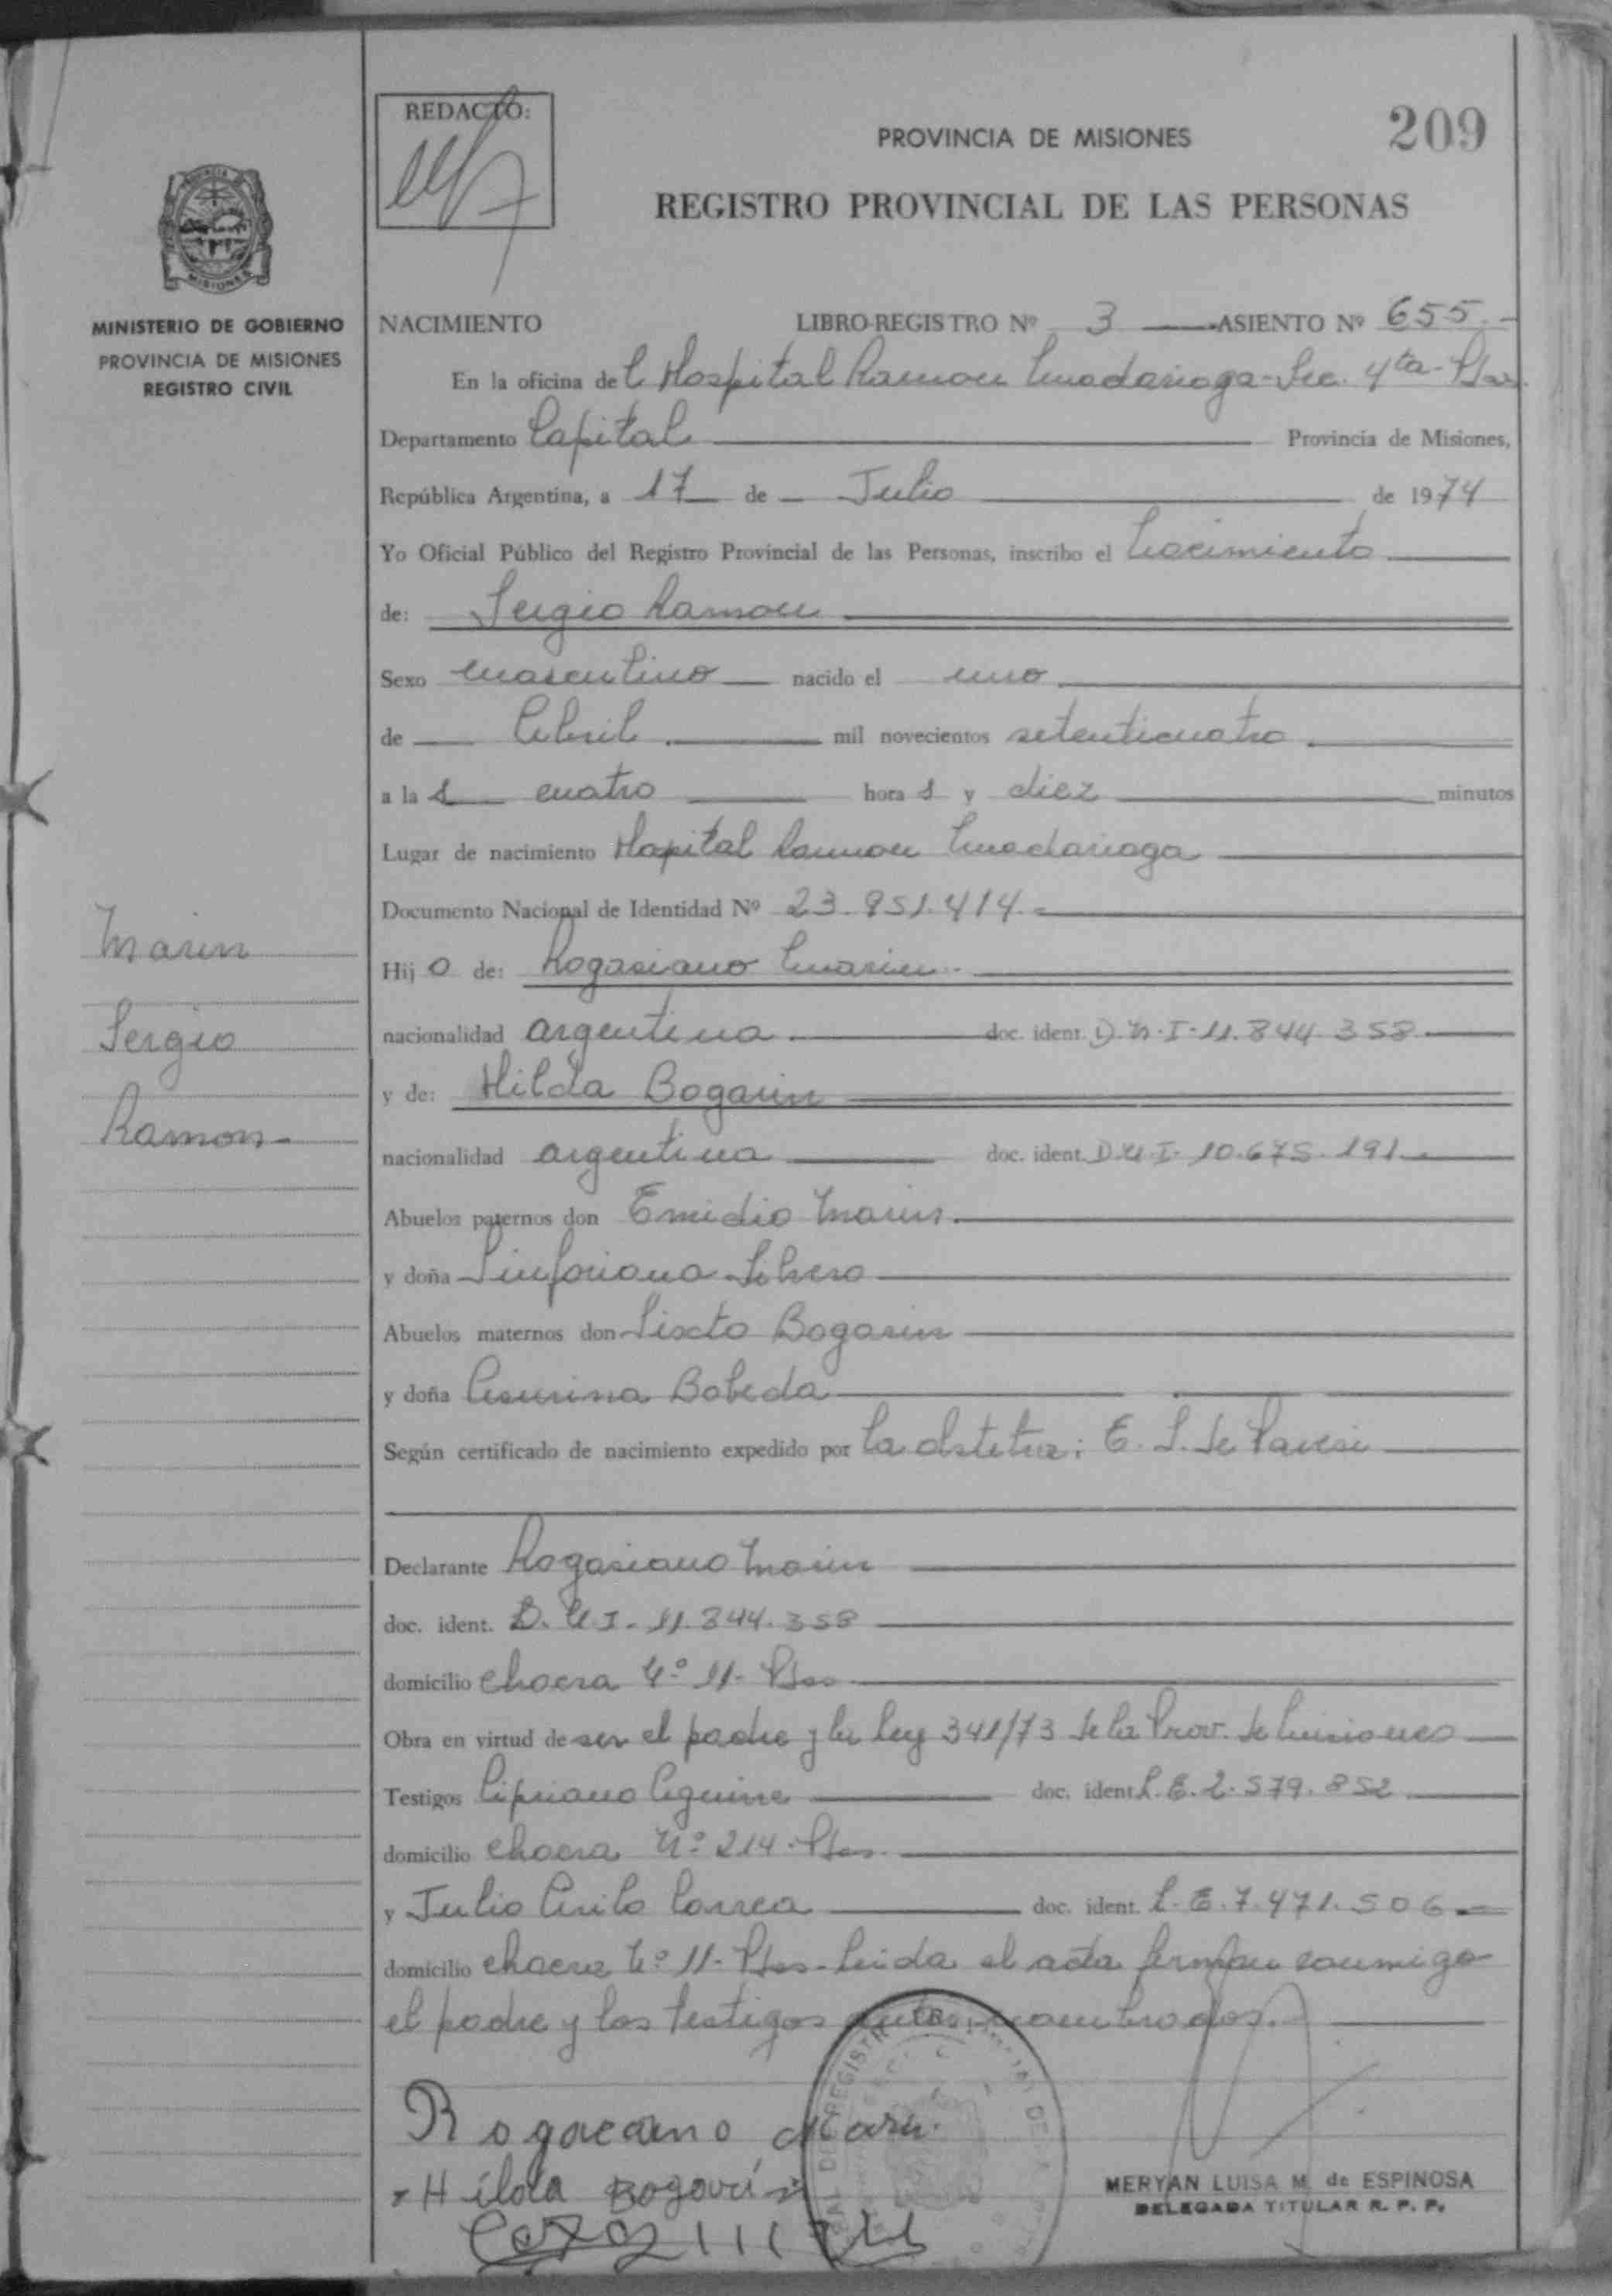 REDACTO:
PROVINCIA DE MISIONES
209
REGISTRO PROVINCIAL DE LAS PERSONAS
MINISTERIO DE GOBIERNO
PROVINCIA DE MISIONES
REGISTRO CIVIL
NACIMIENTO LIBRO-REGISTRO Nº 3 ASIENTO Nº 655.-
En la oficina de l Hospital Ramon Madariaga-Sec. 4ta-Pdas.
Departamento Capital Provincia de Misiones,
República Argentina, a 17 de Julio de 1974
Yo Oficial Público del Registro Provincial de las Personas, inscribo el Nacimiento
de: Sergio Ramon
Sexo masculino nacido el uno
de Abril mil novecientos setenticuatro
a la s cuatro hora s y diez minutos
Lugar de nacimiento Hospital Ramon Madariaga
Documento Nacional de Identidad Nº 23.951.414.-
Marin
Sergio
Ramon-
Hij o de: Rogasiano Marin.-
nacionalidad argentina doc. ident. D.N.I-11.844.358
y de: Hilda Bogarin
nacionalidad argentina doc. ident. D.N.I- 10.675.191.-
Abuelos paternos don Emidio Marin.
y doña Sinforiana
Abuelos maternos don Sixto Bogarin
y doña Bobeda
Según certificado de nacimiento expedido por La obstetra: E. S. de
Declarante Rogasiano Marin
doc. ident. D.N.I-11.844.358
domicilio chacra Nº 11- Pdas
Obra en virtud de ser el padre y la ley 341/73 de la Prov. de Misiones
Testigos Cipriano Aguirre doc. ident L.E.2.579.852
domicilio chacra Nº 214-Pdas.
y Julio Correa doc. ident. L.E.7.471.506
domicilio chacra Nº 11- Pdas-Leida el acta firman conmigo
el padre y los testigos antes nombrados.
Rogaciano Marin.
Hilda Bogarín
MERYAN LUISA M. de ESPINOSA
DELEGADA TITULAR R. P. P.